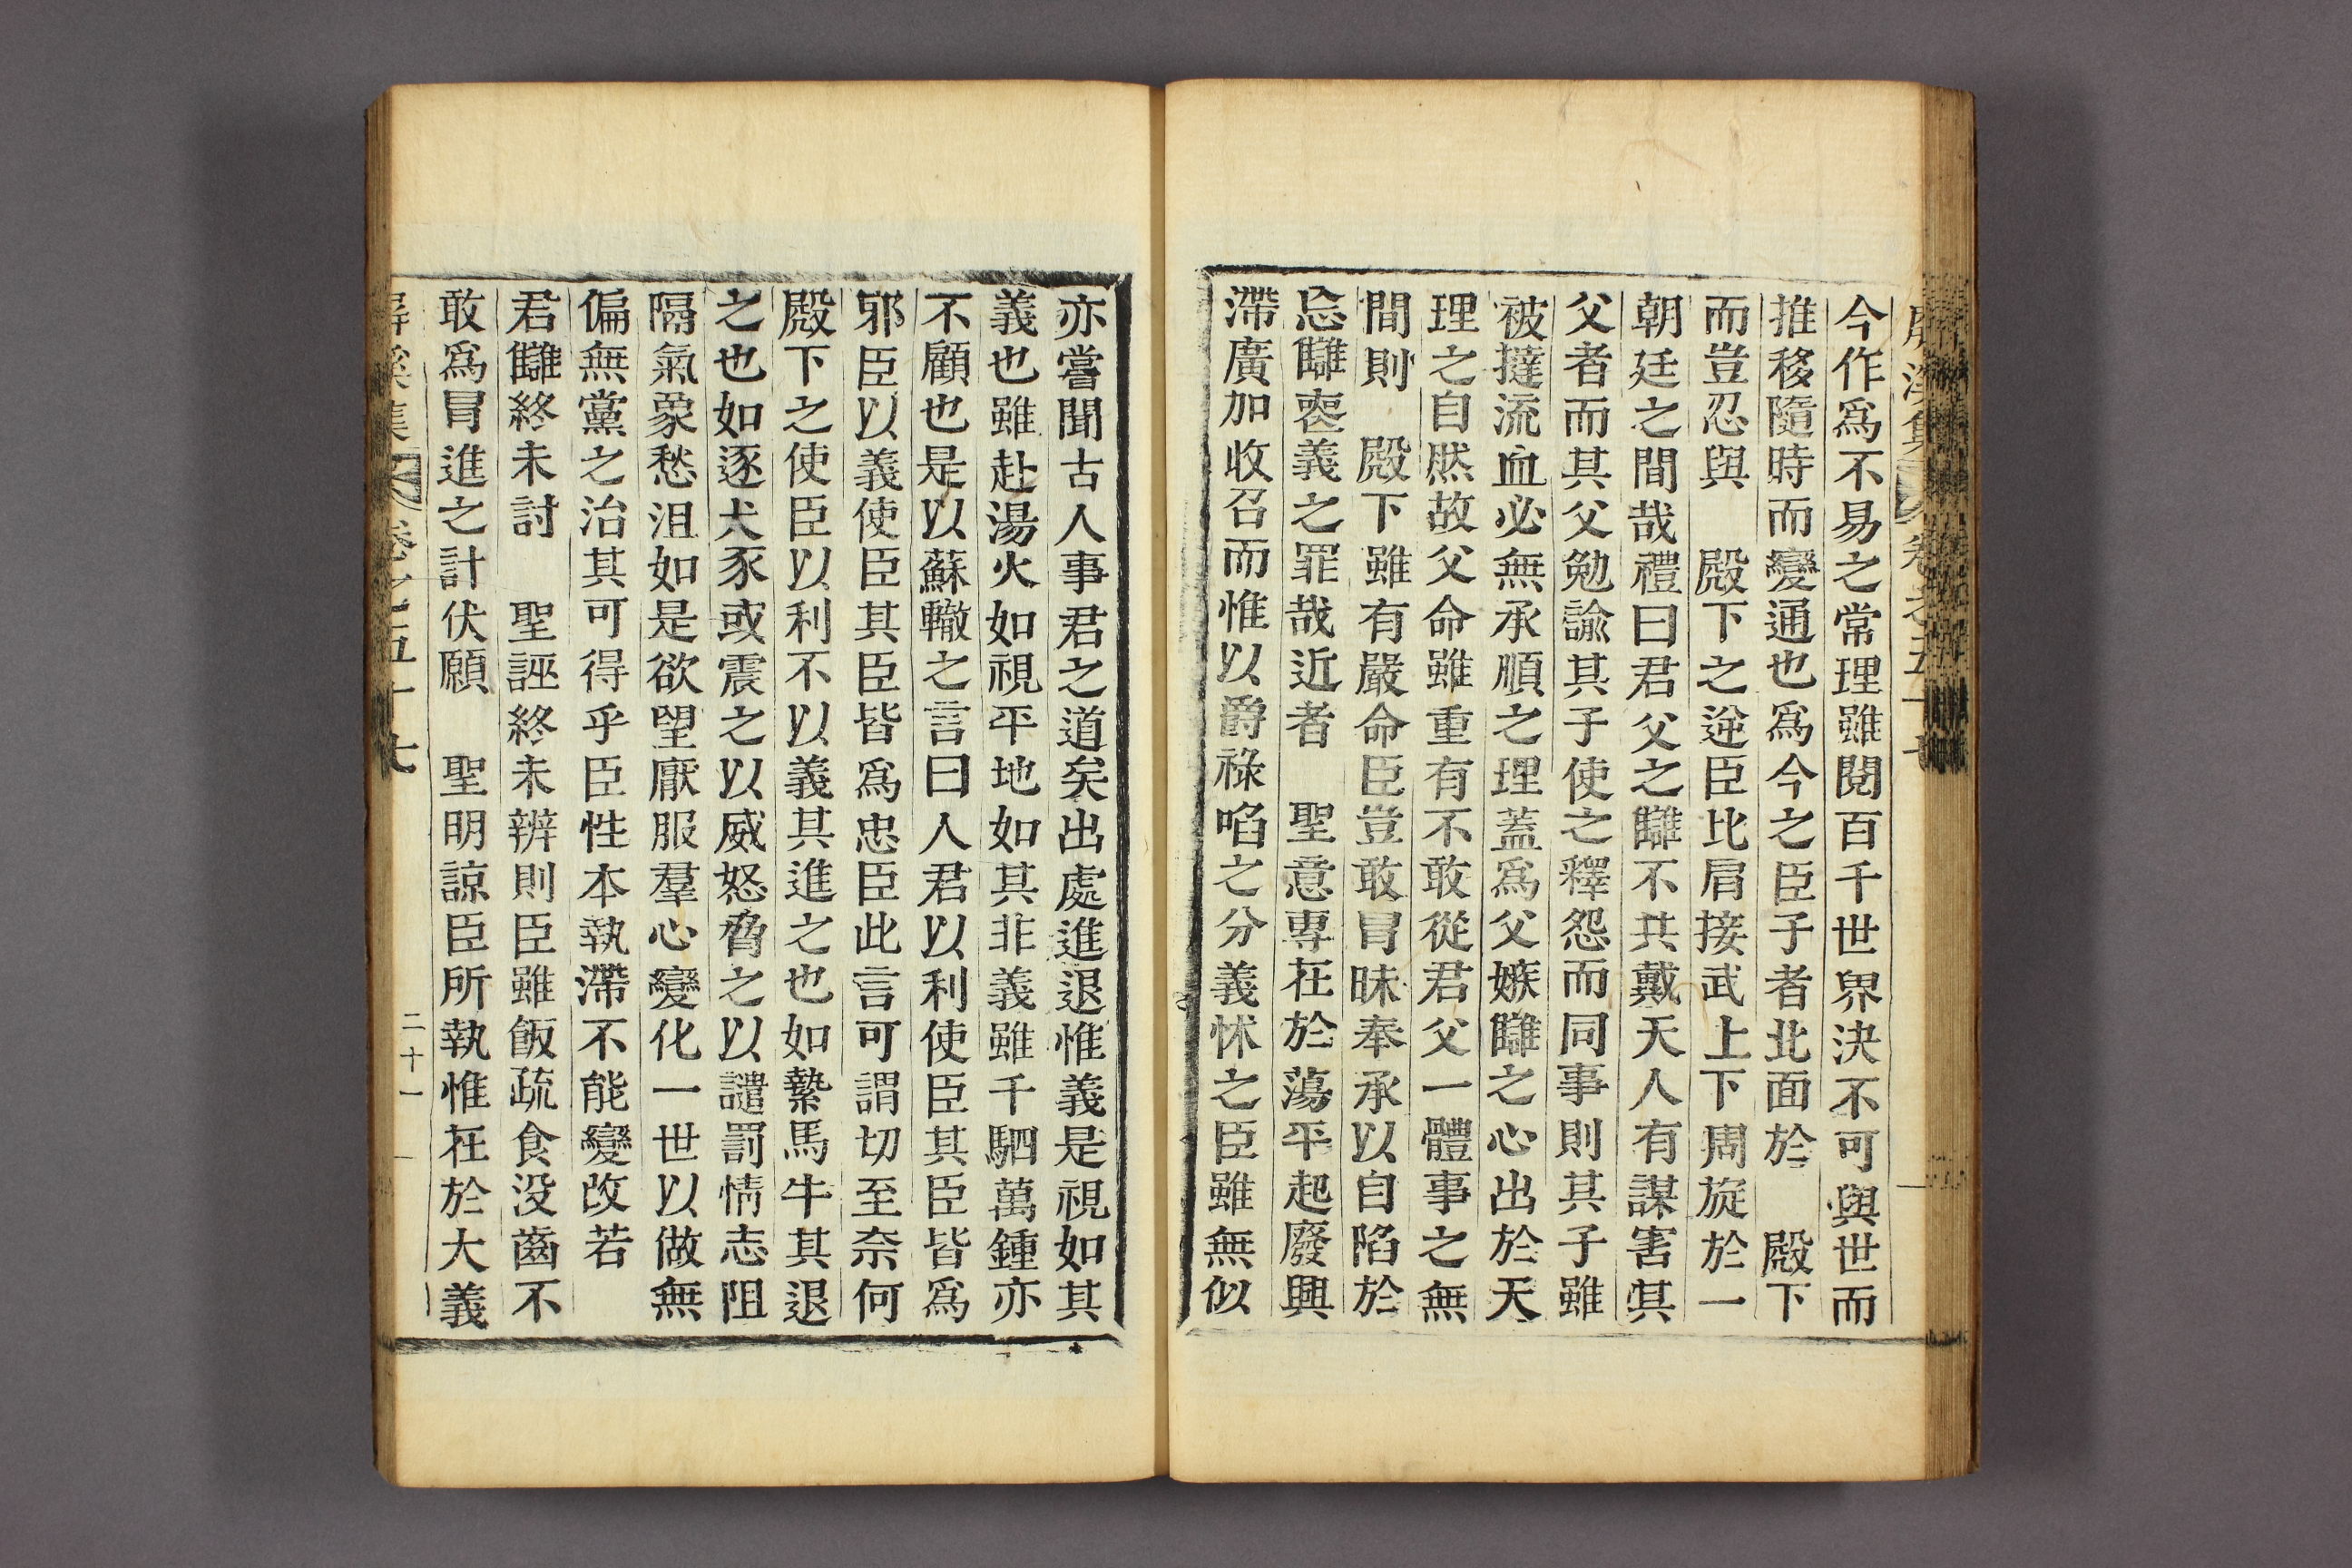 今作爲不易之常理雖閱百千世界決不可與世而
推移隨時而變通也爲今之臣子者北面於　殿下
而豈忍與　殿下之逆臣比肩接武上下周旋於一
朝廷之間哉禮曰君父之讎不共戴天人有謀害其
父者而其父勉諭其子使之釋怨而同事則其子雖
被撻流血必無承順之理蓋爲父嫉讎之心出於天
理之自然故父命雖重有不敢從君父一體事之無
間則　殿下雖有嚴命臣豈敢冒昧奉承以自陷於
忘讎喪義之罪哉近者　聖意專在於蕩平起廢興
滯廣加收召而惟以爵祿啗之分義怵之臣雖無似
亦嘗聞古人事君之道矣出處進退惟義是視如其
義也雖赴湯火如視平地如其非義雖千駟萬鍾亦
不顧也是以蘇轍之言曰人君以利使臣其臣皆爲
邪臣以義使臣其臣皆爲忠臣此言可謂切至奈何
殿下之使臣以利不以義其進之也如縶馬牛其退
之也如逐犬豕或震之以威怒脅之以譴罰情志阻
隔氣象愁沮如是欲望厭服羣心變化一世以做無
偏無黨之治其可得乎臣性本執滯不能變改若
君讎終未討　聖誣終未辨則臣雖飯疏食没齒不
敢爲冒進之計伏願　聖明諒臣所執惟在於大義
屛溪集　卷之五十七
二十一